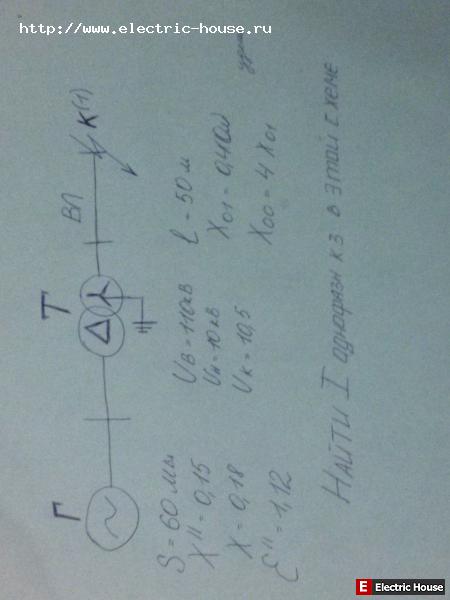 http://www.electric-house.ru
Г
Т
ВЛ
К(1)
S = 60 МВт
X" = 0,15
X = 0,18
E" = 1,12
Uв = 110 кВ
Uн = 10 кВ
Uк = 10,5
l = 50 м
X01 = 0,4 Ом
X00 = 4 X01
НАЙТИ I однофазн кз в этой схеме
E Electric House